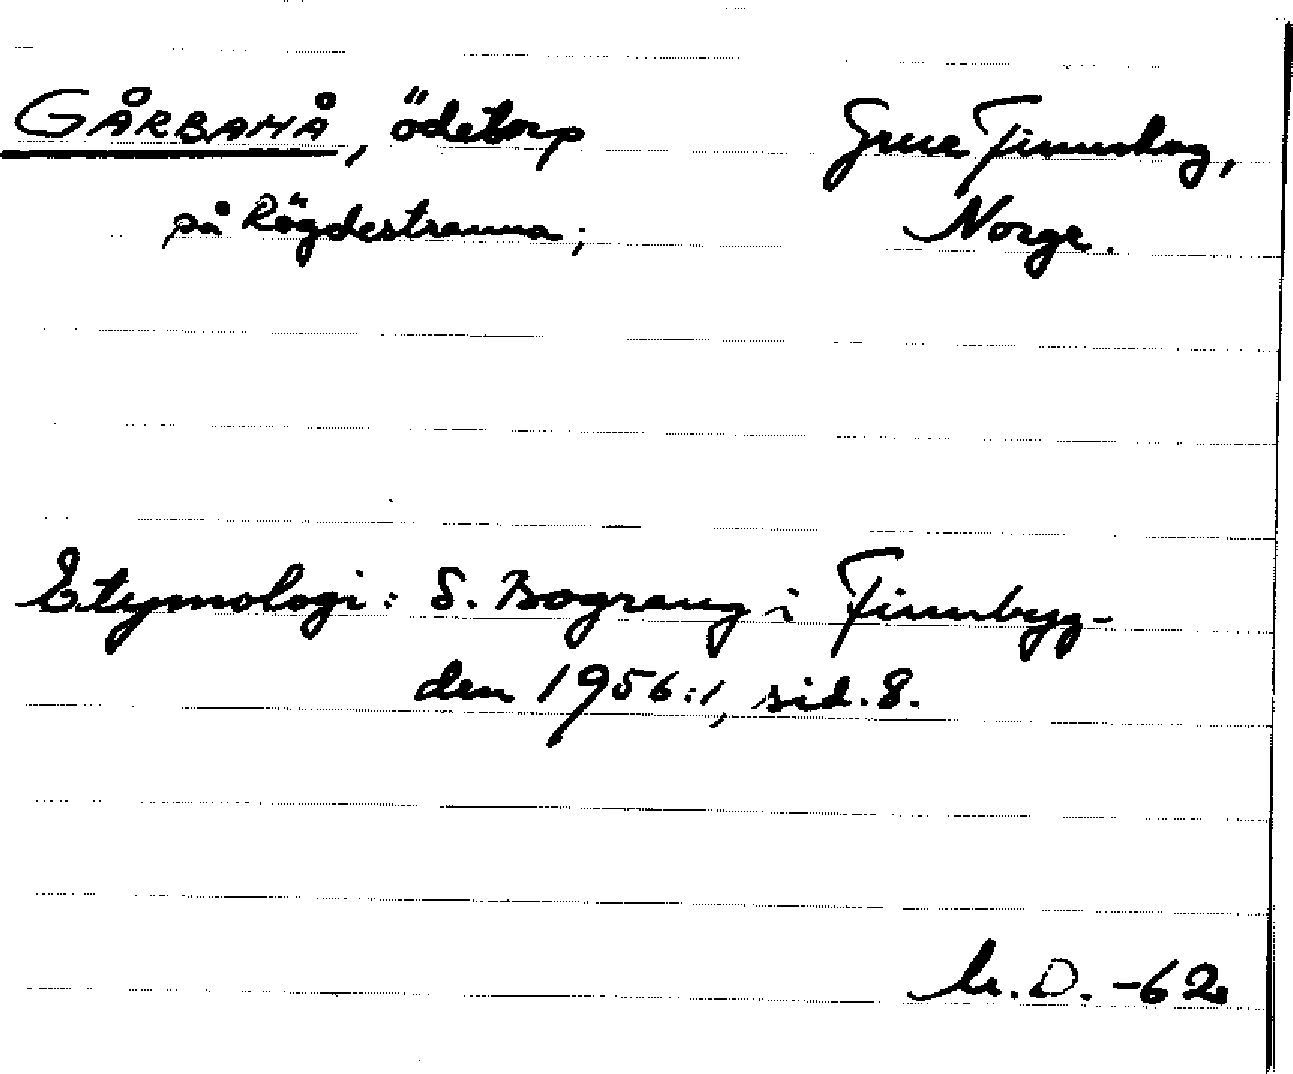 GÅRBAMÅ, ödetorp
Grue Finnskog,
på Rögdestranna;
Norge.
Etymologi: S. Bograng i Finnbyg-
den 1956:1, sid. 8.
D. -62